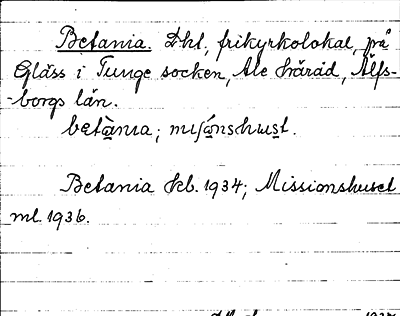 Betania. Dkl, frikyrkolokal, på
Gläss i Tunge socken, Ale härad, Älfs-
-borgs län.
betània; miſónshust.
Betania kb. 1934; Missionshuset
ml. 1936.